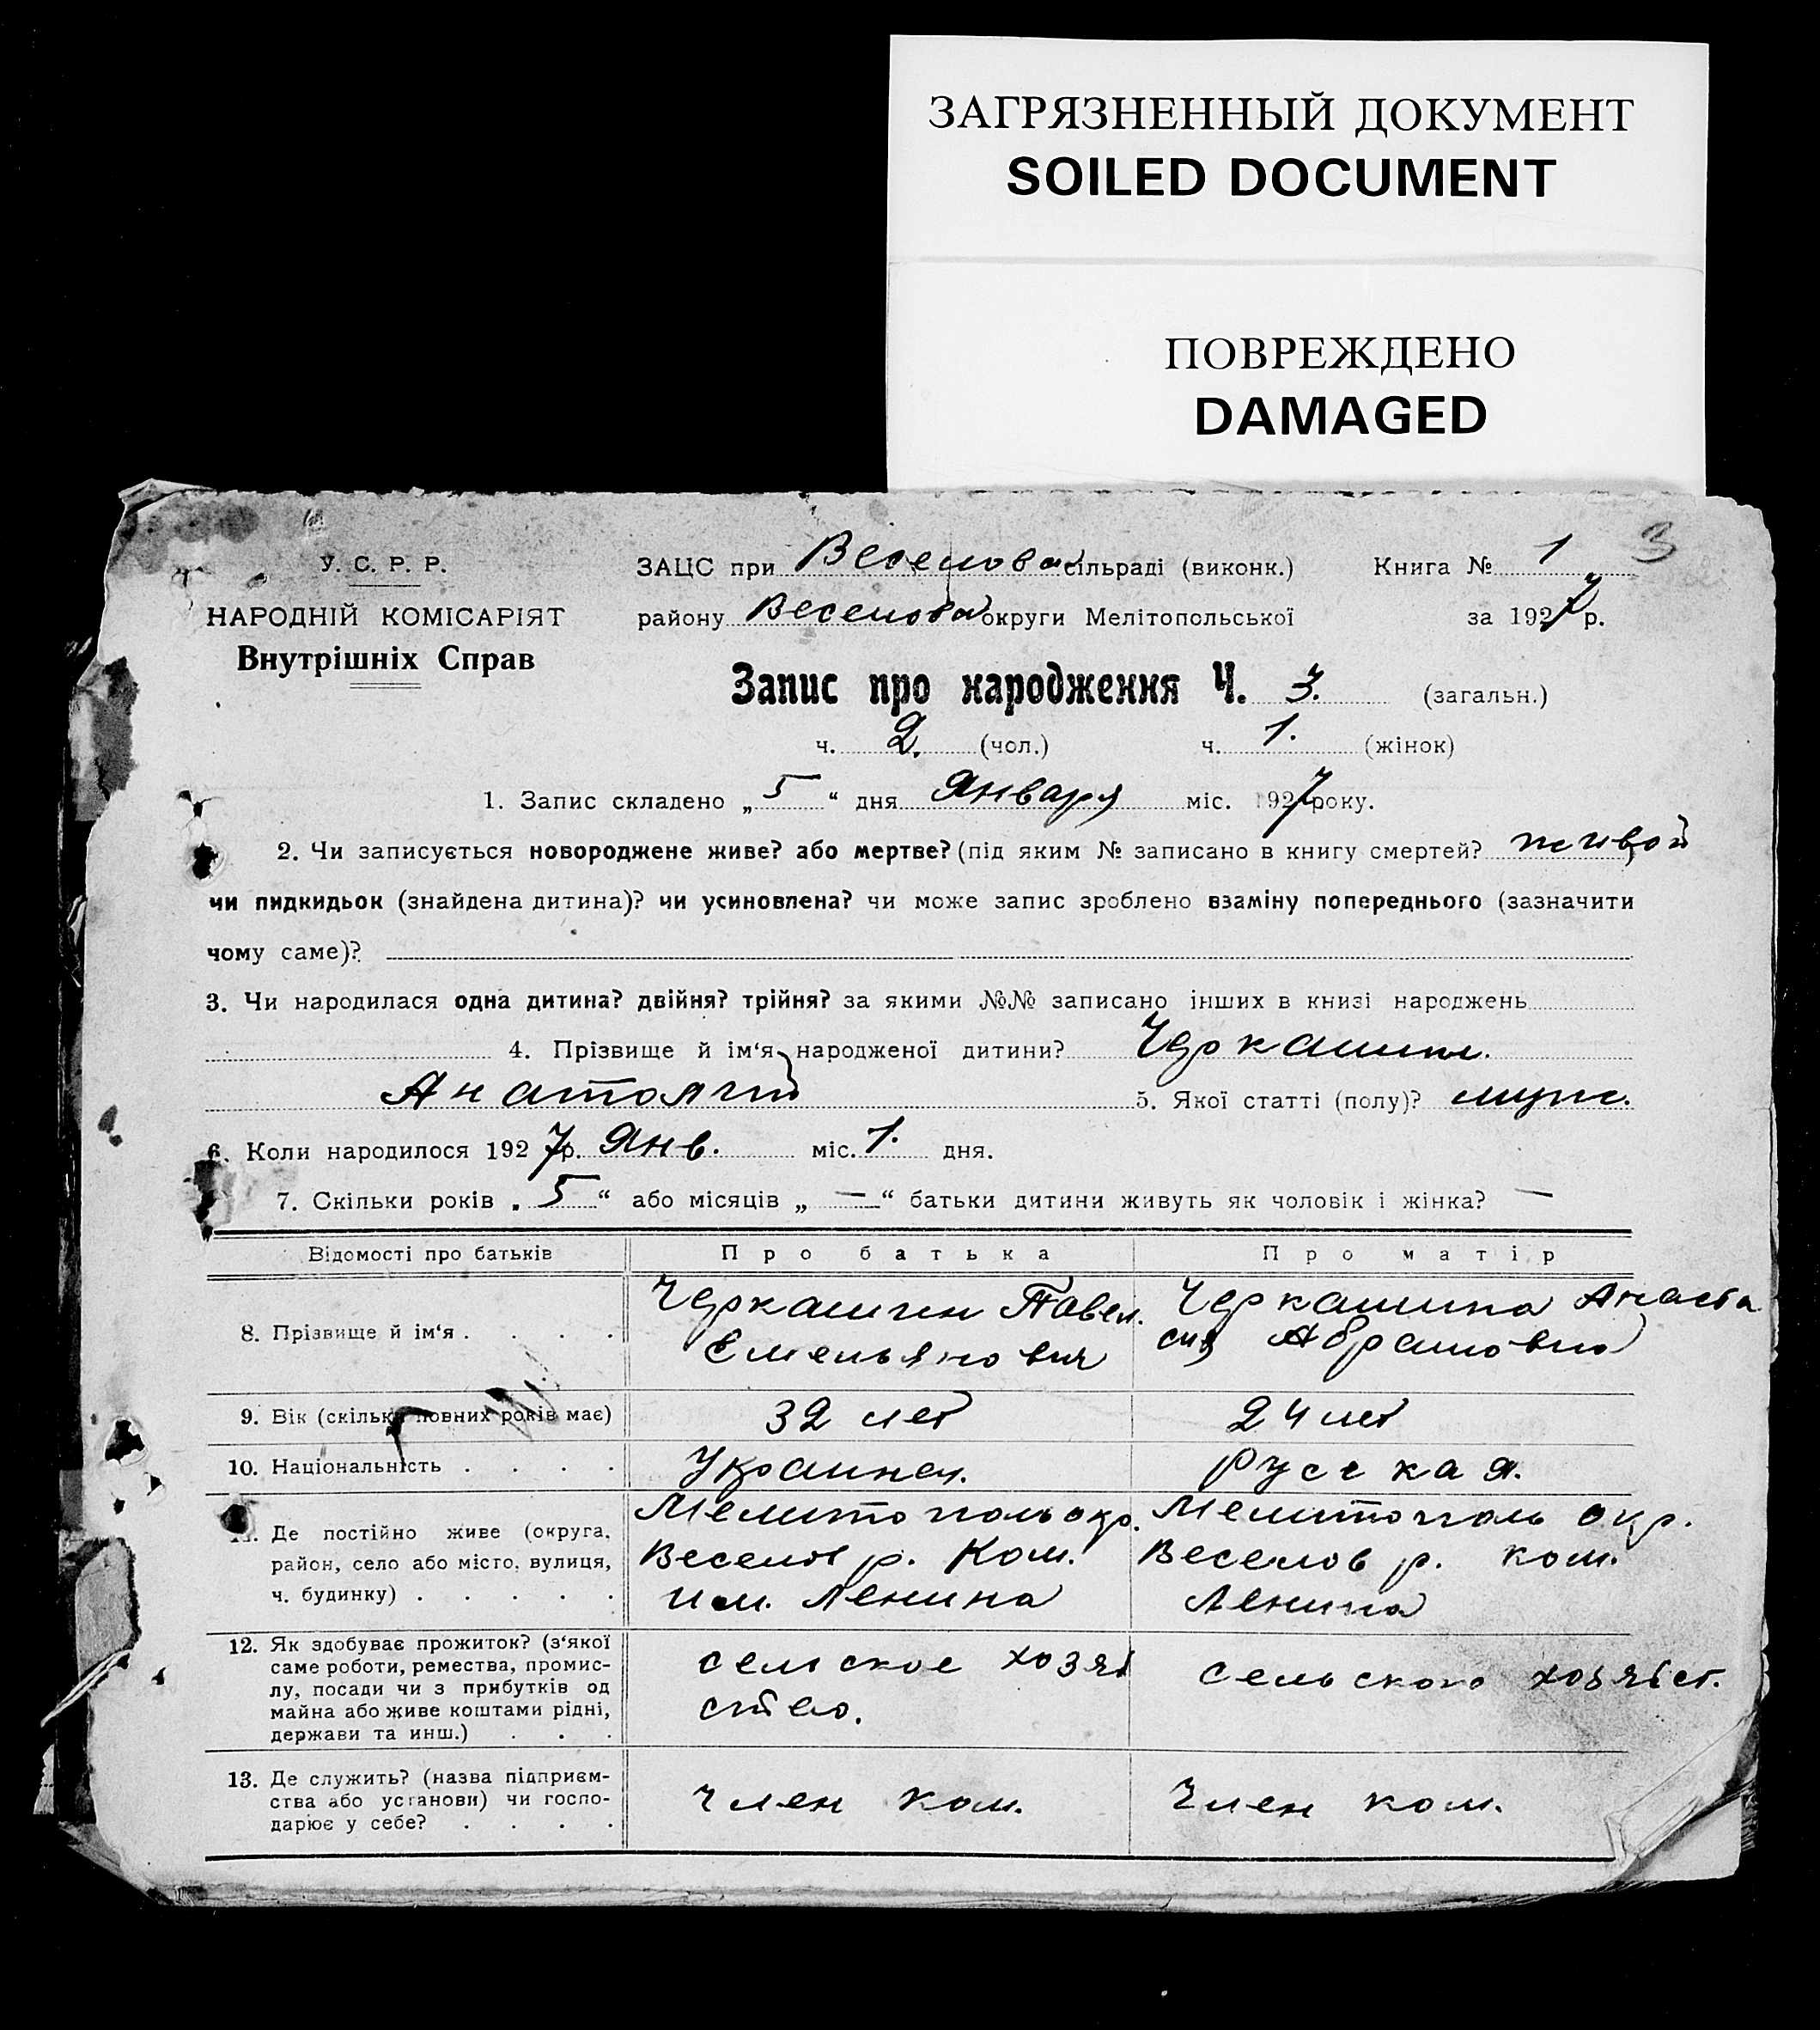 ЗАГРЯЗНЕННЫЙ ДОКУМЕНТ
SOILED DOCUMENT
ПОВРЕЖДЕНО
DAMAGED
3
У. С. Р. Р.
НАРОДНІЙ КОМІСАРІЯТ
Внутрішніх Справ
ЗАЦС при Веселовс сільраді (виконк.) Книга № 1
району Веселова округи Мелітопольської за 1927 р.
Запис про народження Ч. 3. (загальн.)
ч. 2. (чол.) ч. 1. (жінок)
1. Запис складено „ 5 “ дня Января міс. 1927 року.
2. Чи записується новороджене живе? або мертве? (під яким № записано в книгу смертей? живой
чи пидкидьок (знайдена дитина)? чи усиновлена? чи може запис зроблено взаміну попереднього (зазначити
чому саме)?
3. Чи народилася одна дитина? двійня? трійня? за якими №№ записано інших в книзі народжень
4. Прізвище й ім‘я народженої дитини? Черкашин.
Анатолий 5. Якої статті (полу)? муж.
6. Коли народилося 1927 р. Янв. міс. 1. дня.
7. Скільки років „ 5 “ або місяців „ — “ батьки дитини живуть як чоловік і жінка? —
Відомості про батьків Про батька Про матір
8. Прізвище й ім‘я . . . .
Черкашин Павел.
Емельянович
Черкашина Анаста
сия Абрамовна
9. Вік (скільки повних років має) 32 лет 24 лет
10. Національність . . . . Украинец. Русская.
11. Де постійно живе (округа,
район, село або місто, вулиця,
ч. будинку) . . . . .
Мелитополь окр.
Веселов р. Ком.
им. Ленина
Мелитополь окр.
Веселов р. ком.
Ленина
12. Як здобуває прожиток? (з‘якої
саме роботи, ремества, промис-
лу, посади чи з прибутків од
майна або живе коштами рідні,
держави та инш.) . . .
сельское хозяй
ство.
сельского хозяйст.
13. Де служить? (назва підприєм-
ства або установи) чи госпо-
дарює у себе? . . . .
член ком.
Член ком.